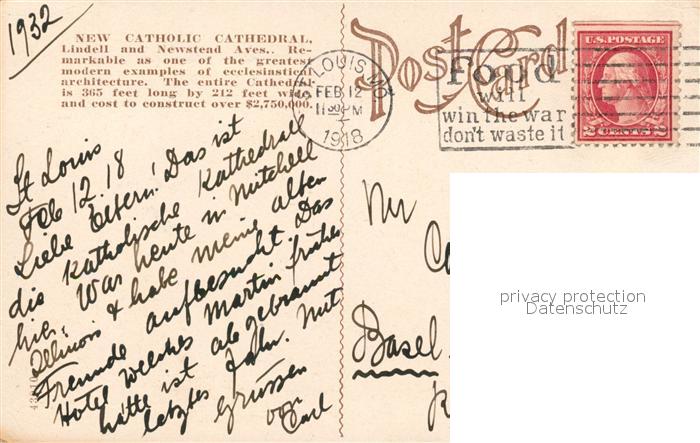 1932
NEW CATHOLIC CATHEDRAL,
Lindell and Newstead Aves.. Re-
markable as one of the greatest
modern examples of ecclesiastical
architecture. The entire Cathedral
is 365 feet long by 212 feet wide
and cost to construct over $2,750,000.
Post Card
ST. LOUIS, MO.
FEB 12
11 30 PM
1918
Food
will
win the war
don't waste it
U.S. POSTAGE
2 CENTS 2
St Louis
Feb 12. 18
Liebe Eltern! Das ist
die Katholische Kathedrall
hier. War heute in Mitchell
Illinois & habe meine alten
Freunde aufbesucht. Das
Hotel welches Martin früher
hatte ist abgebrannt
letztes Jahr. Mit
Grüssen
von
Carl
Mr
Basel.
privacy protection
Datenschutz